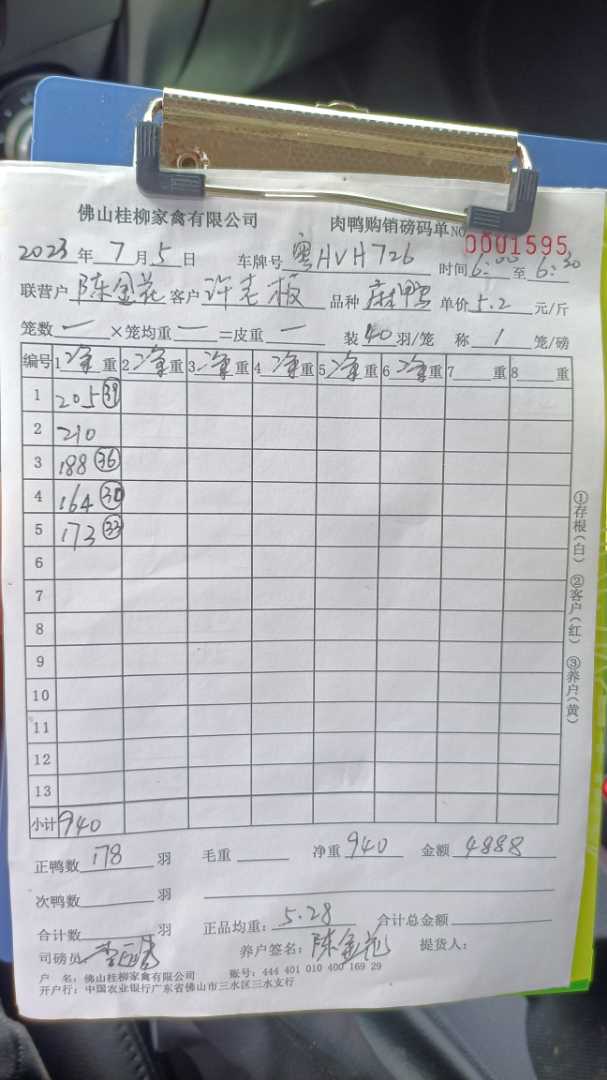 佛山桂柳家禽有限公司 肉鸭购销磅码单 NO 0001595
2023年7月5日 车牌号 粤HVH726 时间 6:00 至 6:30
联营户 陈金花 客户 许老板 品种 麻鸭 单价 5.2 元/斤
笼数 一 ×笼均重 一 =皮重 一 装 40 羽/笼 称 1 笼/磅
编号 1 净重 2 净重 3 净重 4 净重 5 净重 6 净重 7 重 8 重
1 205 39
2 210
3 188 36
4 164 30
5 173 33
6
7
8
9
10
11
12
13
小计 940
正鸭数 178 羽 毛重 净重 940 金额 4888
次鸭数 羽
合计数 羽 正品均重: 5.28 合计总金额
司磅员: 养户签名: 陈金花 提货人:
户 名: 佛山桂柳家禽有限公司 账号: 444 401 010 400 169 29
开户行: 中国农业银行广东省佛山市三水区三水支行
①存根(白) ②客户(红) ③养户(黄)